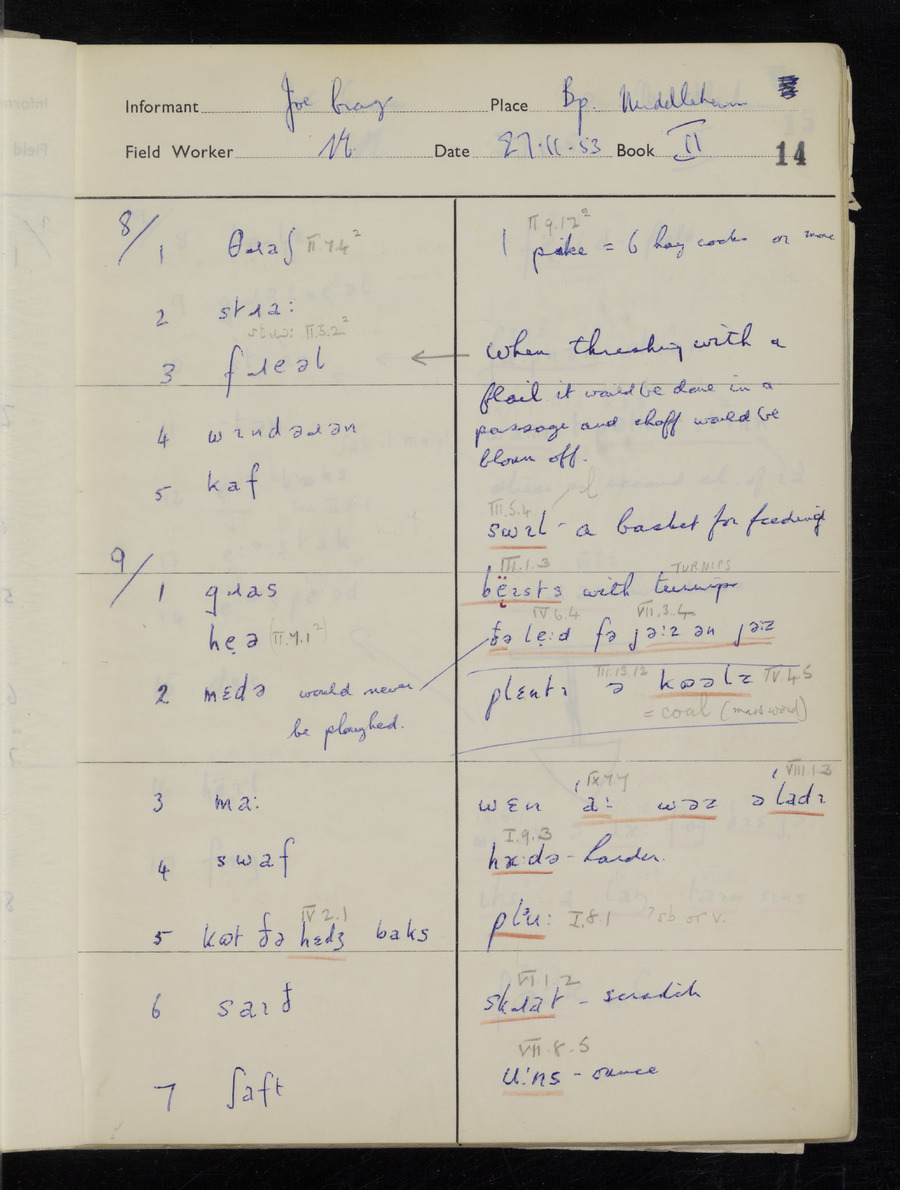 Informant Joe Gray Place Bp. Middleham
Field Worker Date 27.11.53 Book II 14
8/ 1 θɹaʃ II 7.4²
2 stɹa:
stɹɷ: II.3.2²
3 fɹeəl
4 wɪndəɹən
5 kaf
9/ 1 gɹas
hẹə (II.9.1²)
2 mɛdə would never
be ploughed.
3 ma:
4 swaf
5 kɷt ðə hɛdʒ baks
IV 2.1
6 saɪð
7 ʃaft
II 9.12²
1 pike = 6 hay cocks or more
← when threshing with a
flail it would be done in a
passage and chaff would be
blown off.
III.5.4
swɪl - a basket for feeding
III.1.3 TURNIPS
bẹ̈ɪsts with turnips
IV 6.4 VII.3.4
ðə lẹ:d fə jə:z ən jə:z
III.13.12 IV.4.5
plɛntɪ ə kɷəlz
= coal (mass word)
IX.7.7 VIII.1.3
wɛn ˈa: wəz ə ˈladɪ
I.9.3
hæ:də - harder.
plᵊu: I.8.1 ?sb or v.
VI 1.2
skɹat - scratch
VII.8.5
u:ns - ounce